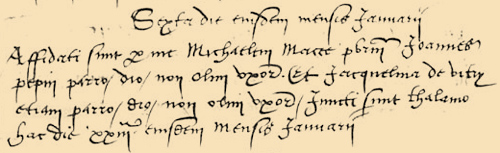 Sexta die eiusdem mensis Januarii
Affidati sunt p me Michaelem Macee pbrm Joannes
pepin parro/ dio/ non olim uxor. Et Jacquelina de vitry
etiam parro/ dio/ non olim uxor/ Juncti sunt thalamo
hac die xxiii eiusdem mensis Januarii